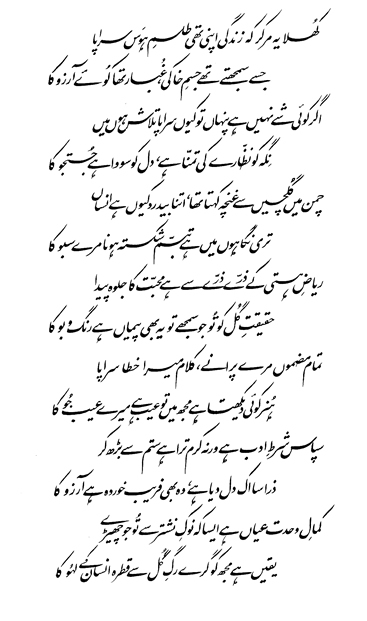 کھُلا یہ مر کر کہ زندگی اپنی تھی طلسمِ ہوَس سراپا
جسے سمجھتے تھے جسمِ خاکی غُبار تھا کوئے آرزو کا
اگر کوئی شے نہیں ہے پنہاں تو کیوں سراپا تلاش ہوں میں
نِگہ کو نظّارے کی تمنّا ہے، دل کو سودا ہے جُستجو کا
چمن میں گُلچیں سے غنچہ کہتا تھا، اتنا بیدرد کیوں ہے انساں
تری نگاہوں میں ہے تبسّم شکستہ ہونا مرے سبو کا
ریاضِ ہستی کے ذرّے ذرّے سے ہے محبّت کا جلوہ پیدا
حقیقتِ گُل کو تُو جو سمجھے تو یہ بھی پیماں ہے رنگ و بو کا
تمام مضموں مرے پرانے، کلام میرا خطا سراپا
ہُنر کوئی دیکھتا ہے مجھ میں تو عیب ہے میرے عیب جُو کا
سپاس شرطِ ادب ہے ورنہ کرم ترا ہے ستم سے بڑھ کر
ذرا سا اک دل دیا ہے، وہ بھی فریب خوردہ ہے آرزو کا
کمالِ وحدت عیاں ہے ایسا کہ نوکِ نشتر سے تُو جو چھیڑے
یقیں ہے مجھ کو گرے رگِ گُل سے قطرہ انسان کے لہُو کا